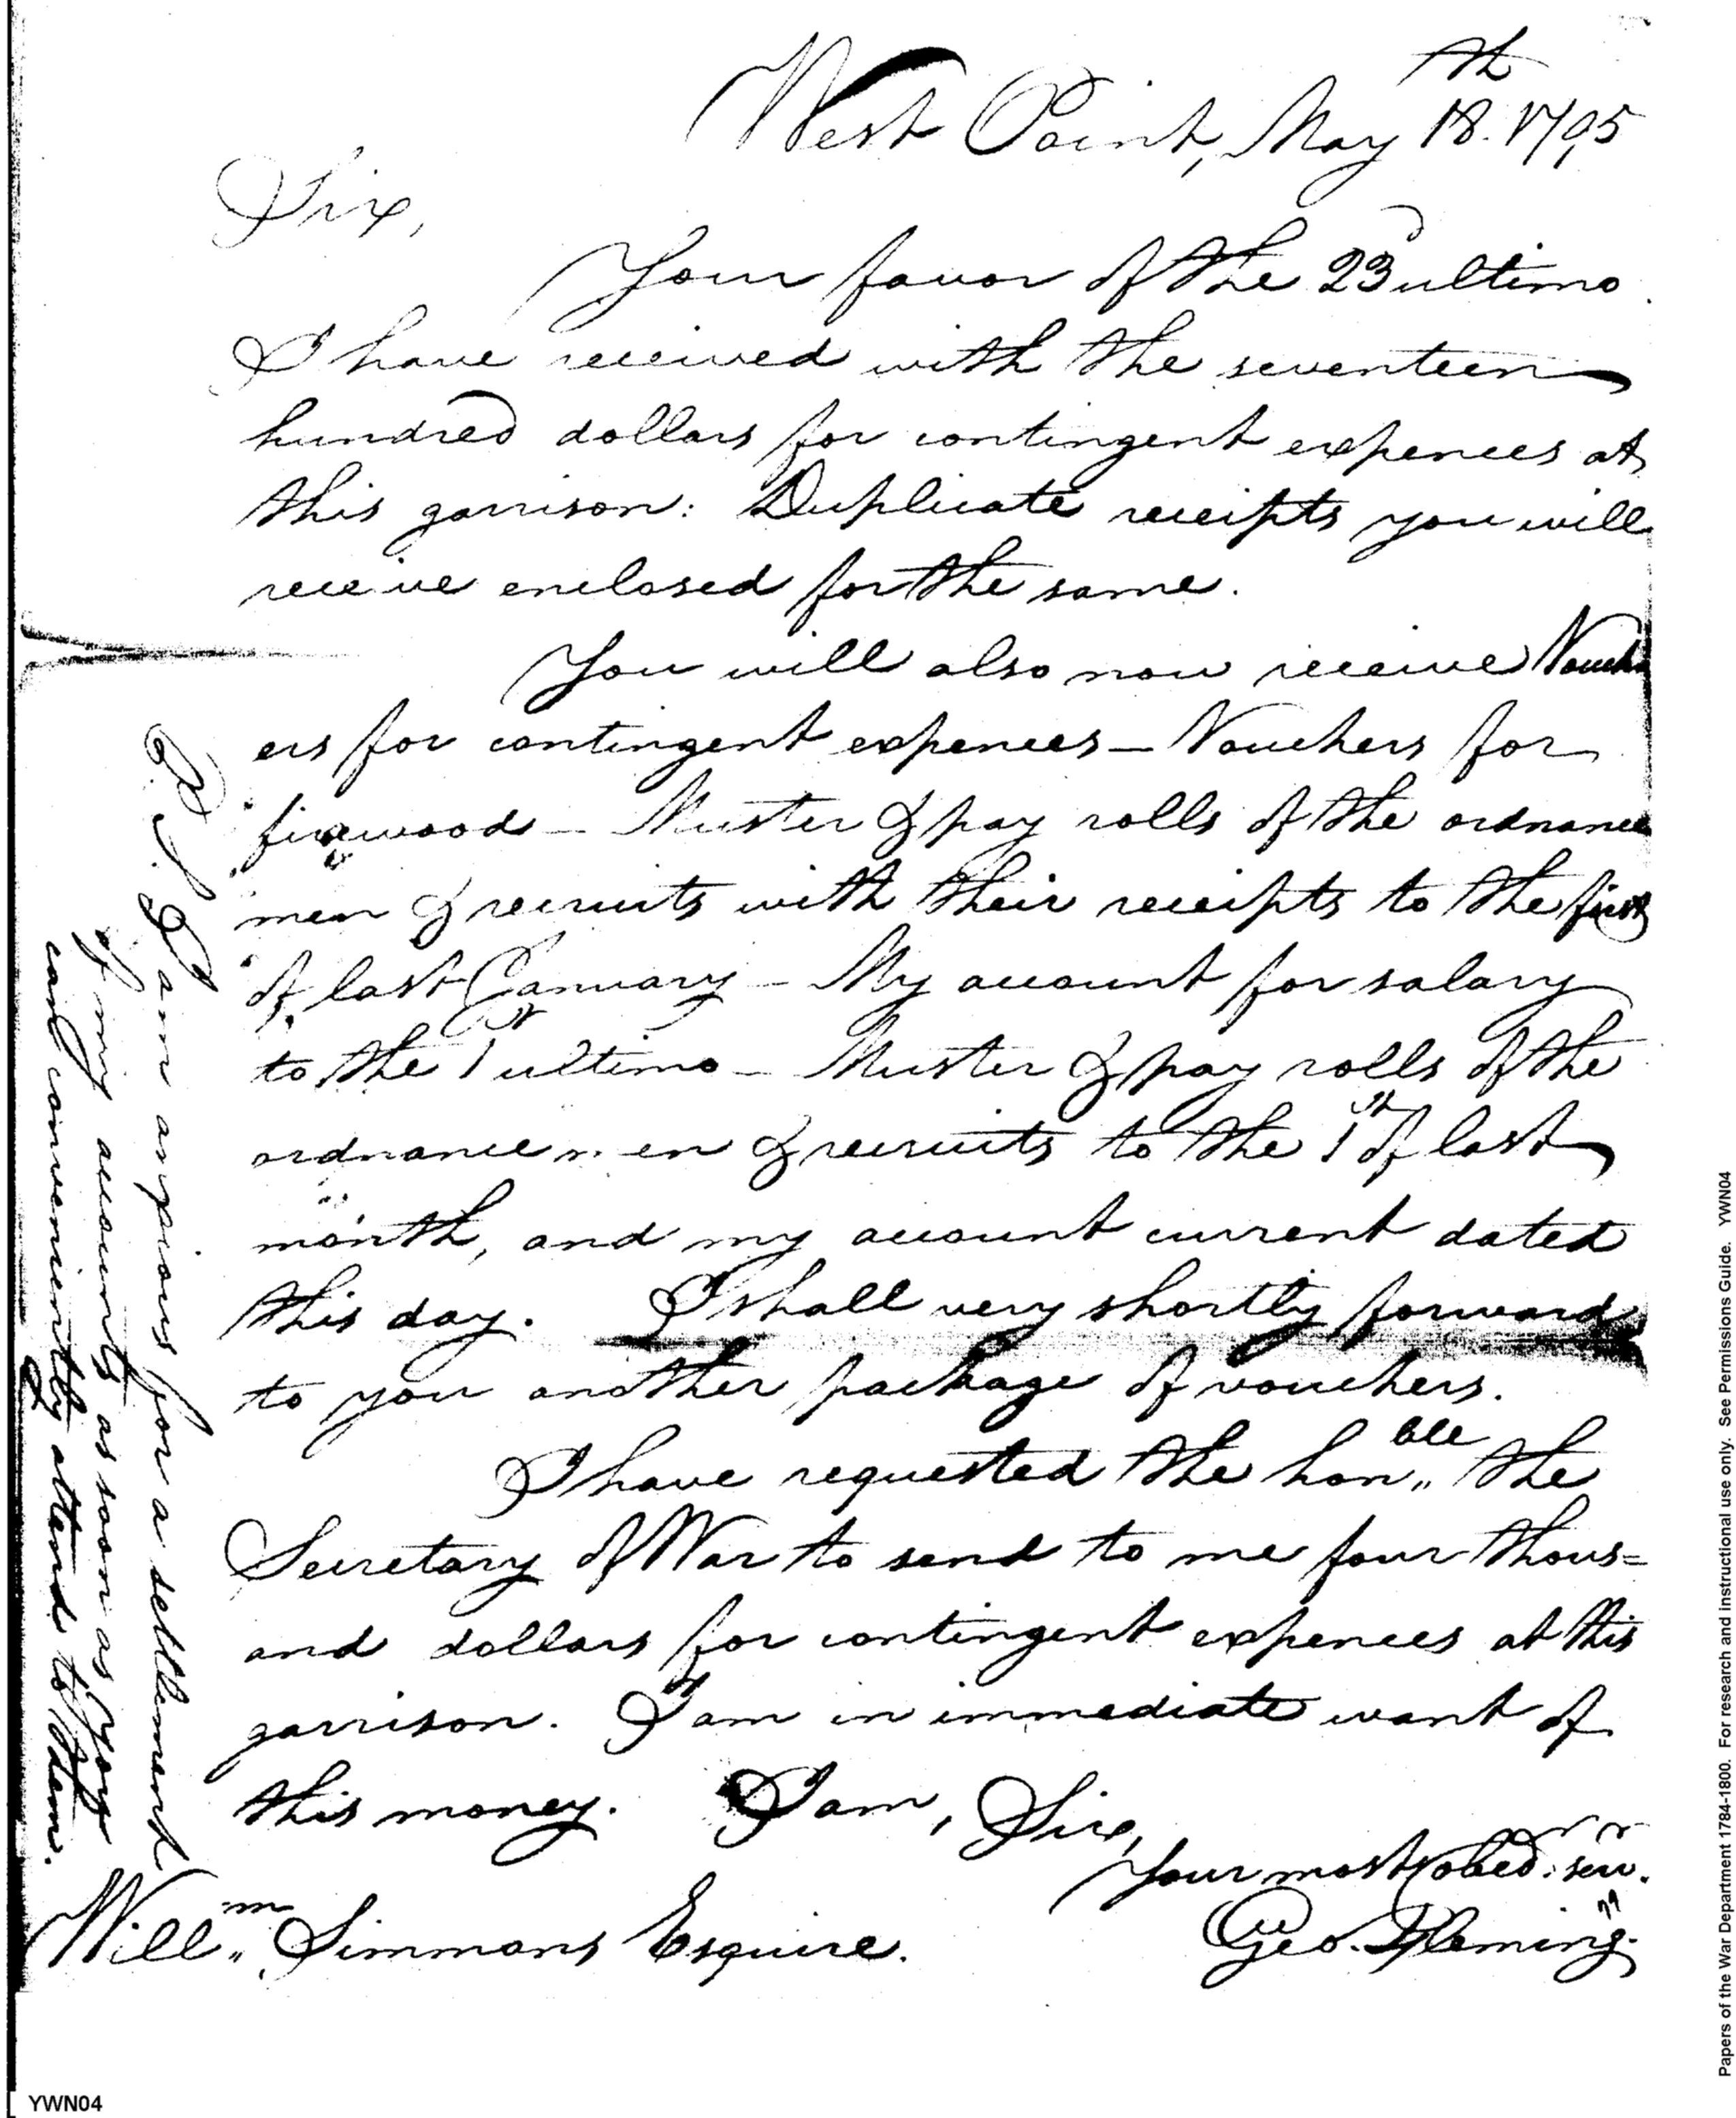 West Point, May 18.th 1795
Sir,
Your favor of the 23d ultimo
I have received with the seventeen
hundred dollars for contingent expences at
this garrison: Duplicate receipts you will
receive enclosed for the same.
You will also now receive Vouch
ers for contingent expences — Vouchers for
firewood — Muster & pay rolls of the ordnance
men & recruits with their receipts to the first
of last January — My account for salary
to the 1st ultimo — Muster & pay rolls of the
ordnance men & recruits to the 1st of last
month, and my account current dated
this day. I shall very shortly forward
to you another package of vouchers.
I have requested the hon,,ble the
Secretary of War to send to me four thous=
and dollars for contingent expences at this
garrison. I am in immediate want of
this money. I am, Sir,
Your most obed: serv.
Geo. Fleming
Will,,m Simmons Esquire.
P.S. I am anxious for a settlement
of my accounts as soon as you
can conveniently attend to them.
Papers of the War Department 1784-1800. For research and instructional use only. See Permissions Guide. YWN04
YWN04